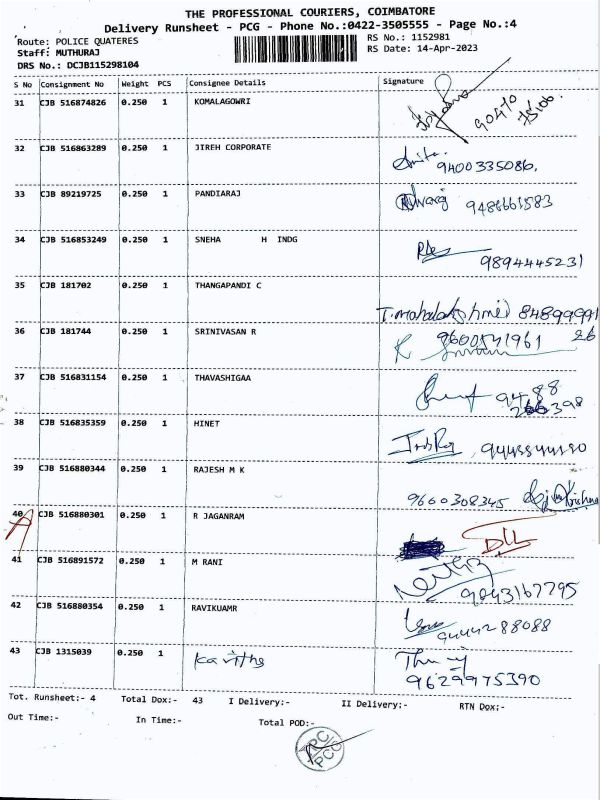 THE PROFESSIONAL COURIERS, COIMBATORE
Delivery Runsheet - PCG - Phone No.:0422-3505555 - Page No.:4
Route: POLICE QUATERES
RS No.: 1152981
Staff: MUTHURAJ
RS Date: 14-Apr-2023
DRS No.: DCJB115298104
S No Consignment No Weight PCS Consignee Details Signature
31 CJB 516874826 0.250 1 KOMALAGOWRI
90470
75106.
32 CJB 516863289 0.250 1 JIREH CORPORATE
Anita 9400335086.
33 CJB 89219725 0.250 1 PANDIARAJ
9486661583
34 CJB 516853249 0.250 1 SNEHA H INDG
9894445231
35 CJB 181702 0.250 1 THANGAPANDI C
T.mahalakshmi 84899991
26
36 CJB 181744 0.250 1 SRINIVASAN R
9600541961
K
37 CJB 516831154 0.250 1 THAVASHIGAA
9488
266398
38 CJB 516835359 0.250 1 HINET
39 CJB 516880344 0.250 1 RAJESH M K
9660308345
40 CJB 516880301 0.250 1 R JAGANRAM
DLL
41 CJB 516891572 0.250 1 M RANI
9843167795
42 CJB 516880354 0.250 1 RAVIKUAMR
9444288088
43 CJB 1315039 0.250 1 Kavitha
9629975390
Tot. Runsheet:- 4 Total Dox:- 43 I Delivery:- II Delivery:- RTN Dox:-
Out Time:- In Time:- Total POD:-
TPC
PCO